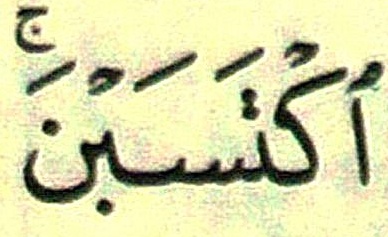 ٱكْتَسَبْنَ ۚ